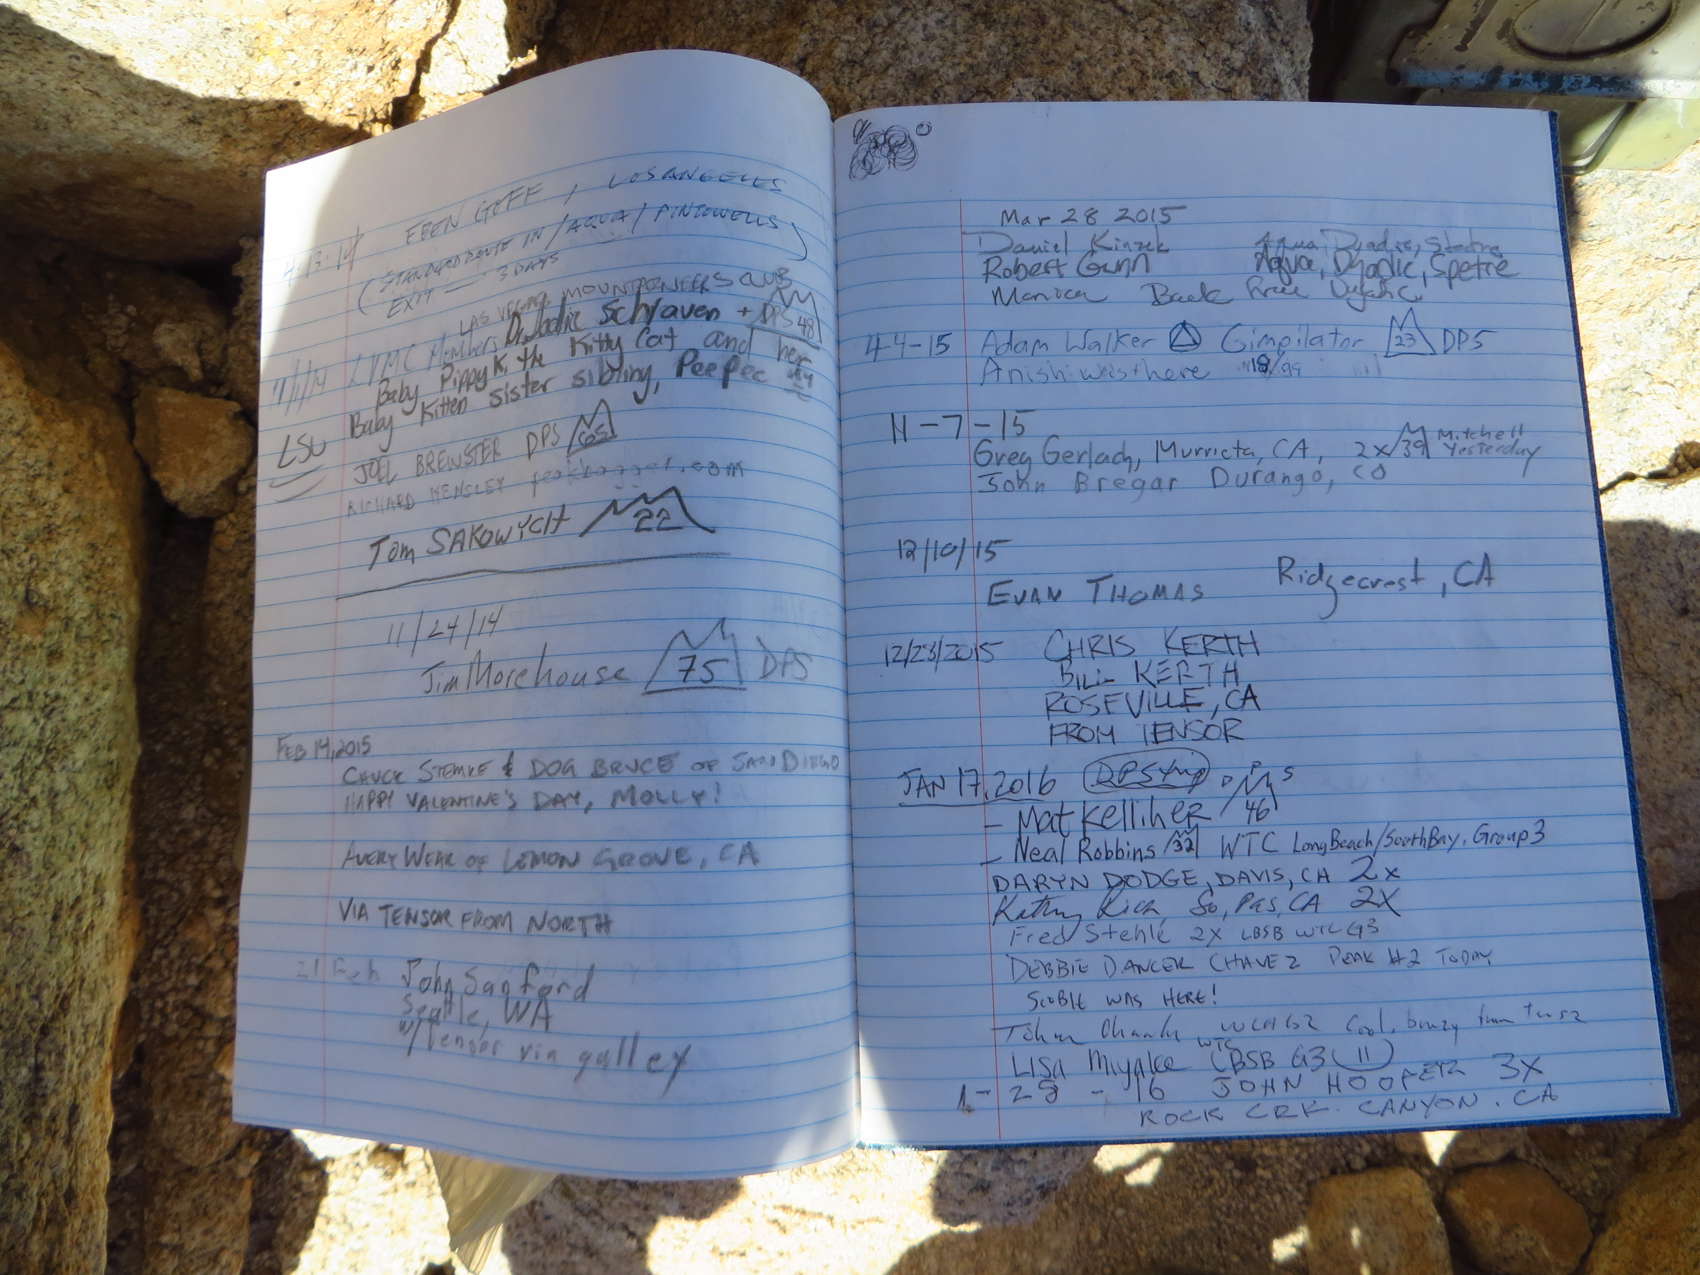 4-13-14 EBEN GOFF, LOS ANGELES
(STANDARD ROUTE IN / AQUA / PINTO WELLS)
EXIT — 3 DAYS
LAS VEGAS MOUNTAINEERS CLUB
LVMC Members Schraven + DPS 48
Baby Pippy K. the Kitty Cat and her
Baby Kitten sister sibling, PeePee
LSU
JOEL BREWSTER DPS 65
RICHARD HENSLEY peakbagger.com
Tom SAKOWYCH 22
11/24/14
Jim Morehouse 75 DPS
FEB 14, 2015
CHUCK STEMKE & DOG BRUCE OF SAN DIEGO
HAPPY VALENTINE'S DAY, MOLLY!
AVERY WEAR OF LEMON GROVE, CA
VIA TENSOR FROM NORTH
21 Feb John Sanford
Seattle, WA
w/ Tensor via gulley
Mar 28 2015
Daniel Aqua, Dyadic,
Robert Gunn Aqua, Dyadic, Spetre
Monica
4-4-15 Adam Walker Gimpilator 23 DPS
Anish was here
11-7-15
Greg Gerlach, Murrieta, CA, 2x 39 Mitchell Yesterday
John Bregar Durango, CO
12/10/15
EVAN THOMAS Ridgecrest, CA
12/23/2015 CHRIS KERTH
BILL KERTH
ROSEVILLE, CA
FROM TENSOR
JAN 17, 2016 DPS
- Mat Kelliher 46
- Neal Robbins 32 WTC Long Beach/South Bay, Group 3
DARYN DODGE, DAVIS, CA 2x
Kathy Rich, So, Pas, CA 2X
Fred Stehle 2x LBSB WTC G3
DEBBIE DANCER CHAVEZ PEAK #2 TODAY
SCOBIE WAS HERE!
Lisa Miyake WTC LBSB G3 (11)
1-28-16 JOHN HOOPER 3X
ROCK CRK. CANYON. CA